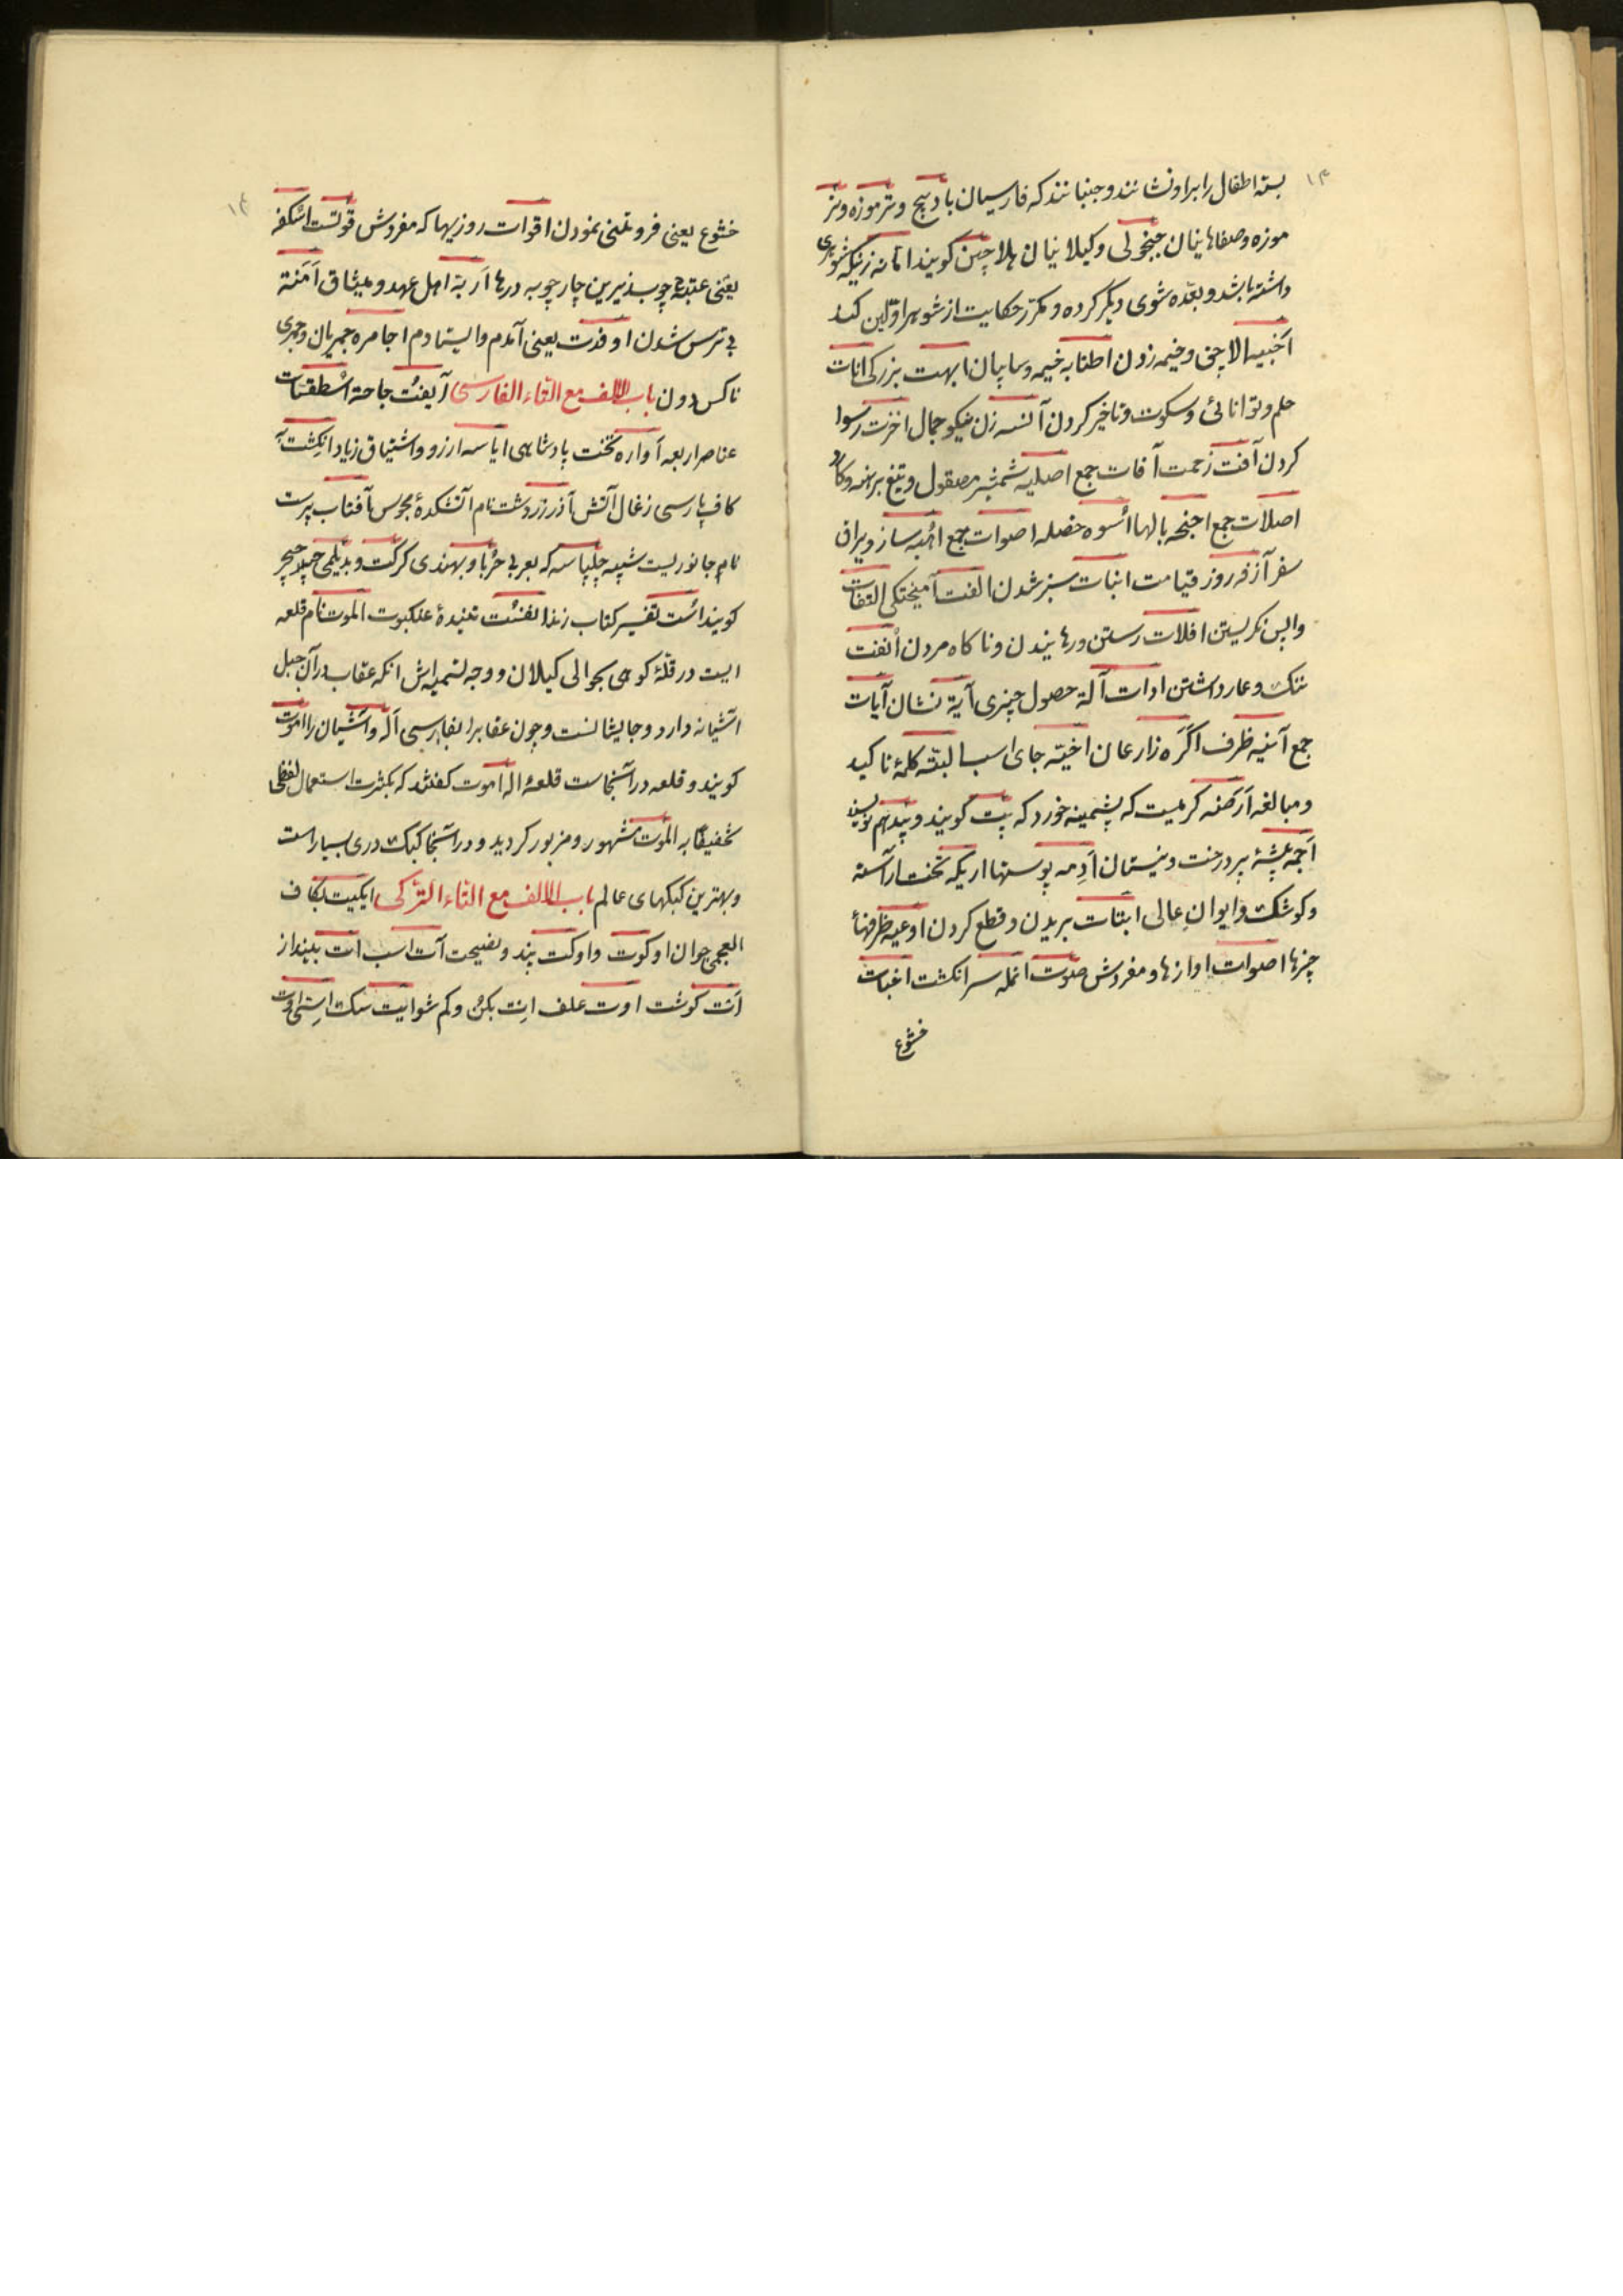 ۱۳
بسته اطفال را برو نشانند و جنبانند که فارسیان بادپیچ و نرموزه و نر
موزه و صفاهانیان جنجولی و کیلانیان هلاچین کویند انانه زنیکه شوهری
داشته باشد و بعده شوی دیگر کرده و مکرر حکایت از شوهر اولین کند
اخبیه الاچق و خیمه زدن اطنابه خیمه و سایبان ابهت بزرکی انات
حلم و توانائی و سکوت و تاخیر کردن آنسه زن نیکو جمال اخزت رسوا
کردن آفت زحمت آفات جمع اصلیه شمشیر مصقول و تیغ برهنه و کارد
اصلات جمع اجنحه بالها اسوه خصله اصوات جمع اهبه ساز و یراق
سفر آزفه روز قیامت انبات سبز شدن الفت آمیختکی التفات
واپس نکریستن افلات رستن و رهانیدن و ناکاه مردن انفت
ننک و عار داشتن ادات آلة حصول چیزی آیة نشان آیات
جمع آنیه ظرف اکره زارعان اخیته جای اسب البته کلمۀ تاکید
و مبالغه ارضه کرمیست که پشمینه خورد که پت کویند و پید هم نویسند
اجمه بیشۀ پر درخت و نیستان ادمه پوستها اریکه تخت آراسته
و کوشک و ایوان عالی ابتات بریدن و قطع کردن اوعیه ظرفها
چیزها اصوات اوازها و مفردش صوت انمله سر انکشت اخبات
خشوع
۱۴
خشوع یعنی فروتنی نمودن اقوات روزیها که مفردش قوتست اسکفه
یعنی عتبه چوب زیرین چارچوبه درها اربة اهل عهد و میثاق آمنة
بی ترس شدن اوفدت یعنی آمدم و ایستادم اجامره جمریان و جمری
ناکس و دون باب الالف مع التاء الفارسی آیفت حاجة اسطقسات
عناصر اربعه آواره تخت پادشاهی ایاسه ارزو و اشتیاق زیاد انکشت به
کاف پارسی زغال آتش آذر زردشت نام آتشکدۀ مجوس آفتاب پرست
نام جانوریست شبیه چلپاسه که بعربی حربا و بهندی کرکت و بدیلمی
کویند است تفسیر کتاب زند انفست تنیدۀ عنکبوت الموت نام قلعه
ایست در قلۀ کوهی بحوالی کیلان و وجه تسمیه اش انکه عقاب در آن جبل
اشیانه دارد و جایشانست و چون عقابرا بفارسی آله و اشیان را اموت
کویند و قلعه در آنجاست قلعۀ اله اموت کفتند که بکثرت استعمال لفظی
تخفیفا به الموت مشهور و مزبور کردید و در آنجا کبک دری بسیار است
و بهترین کبکهای عالم باب الالف مع التاء الترکی ایکیت بکاف
العجمی جوان اوکوت و اوکت پند و نصیحت آت اسب ات بینداز
ات کوشت اوت علف ایت بکن و کم شو ایت سک